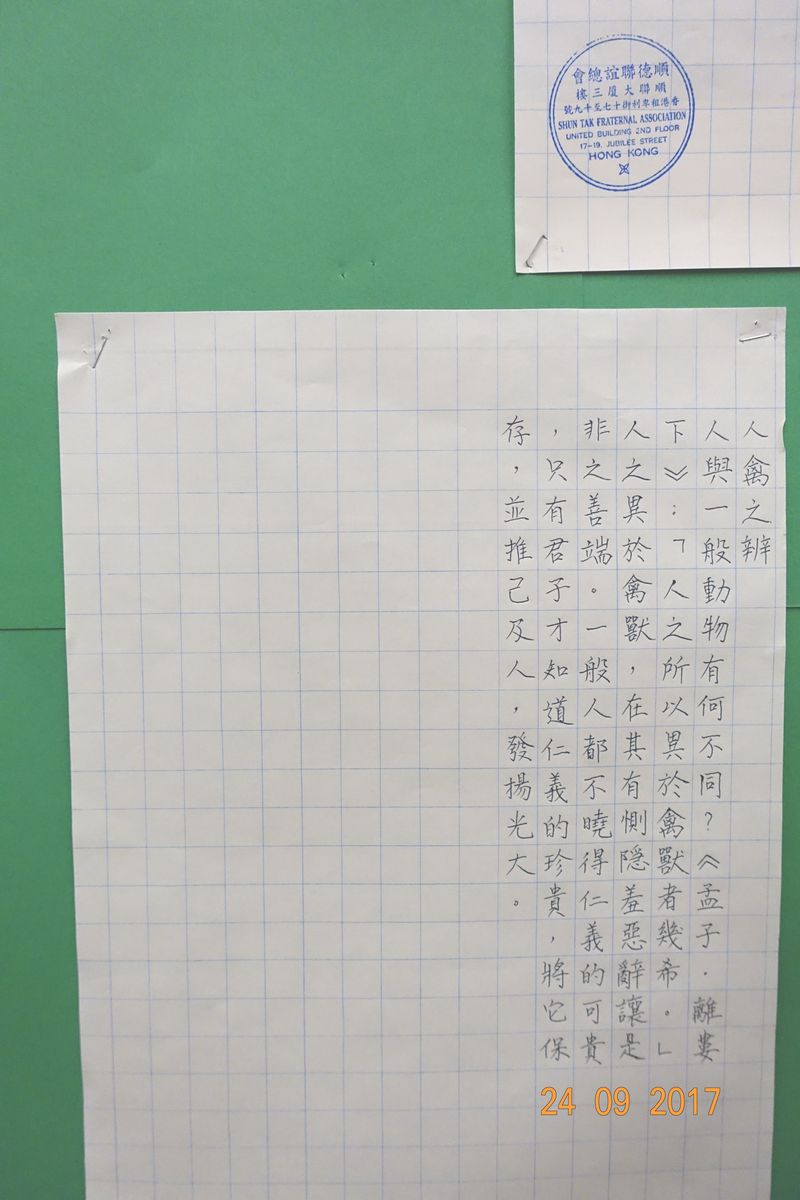 順德聯誼總會
順聯大厦三樓
香港租卑利街十七至十九號
SHUN TAK FRATERNAL ASSOCIATION
UNITED BUILDING 2ND FLOOR
17-19, JUBILEE STREET
HONG KONG
人禽之辨
人與一般動物有何不同?《孟子．離婁
下》:「人之所以異於禽獸者幾希。」
人之異於禽獸，在其有惻隱羞惡辭讓是
非之善端。一般人都不曉得仁義的可貴
，只有君子才知道仁義的珍貴，將它保
存，並推己及人，發揚光大。
24 09 2017